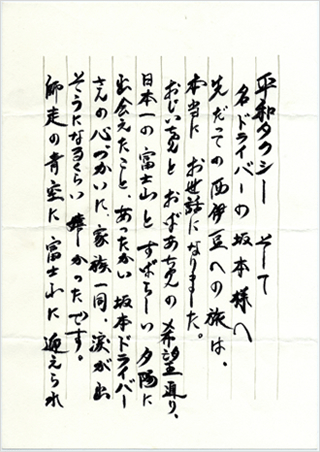 平和タクシー そして
名ドライバーの坂本様へ
先だっての西伊豆への旅は、
本当に お世話になりました。
おじいちゃんとおばあちゃんの希望通り、
日本一の富士山とすばらしい夕陽に
出会えたこと、あったかい坂本ドライバー
さんの心づかいに、家族一同、涙が出
そうになるくらい嬉しかったです。
師走の青空に富士山に迎えられ